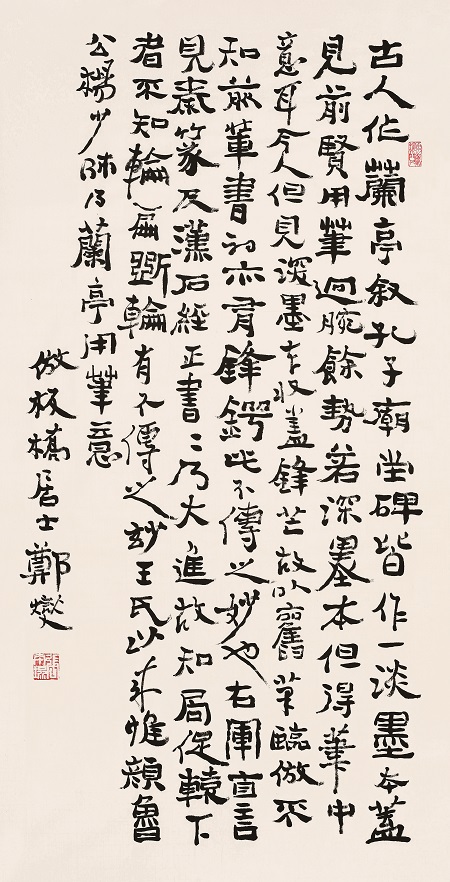 古人作蘭亭叙孔子廟堂碑皆作一淡墨本蓋
見前賢用筆迴腕餘勢若深墨本但得筆中
意耳今人但見深墨本收蓋鋒芒故以舊筆臨倣不
知前輩書初亦有鋒鍔此不傳之妙也右軍言
見秦篆及漢石經正書〻乃大進故知局促轅下
者不知輪扁斲輪有不傳之妙王氏以來惟顏魯
公楊少師得蘭亭用筆意
倣板橋居士鄭燮